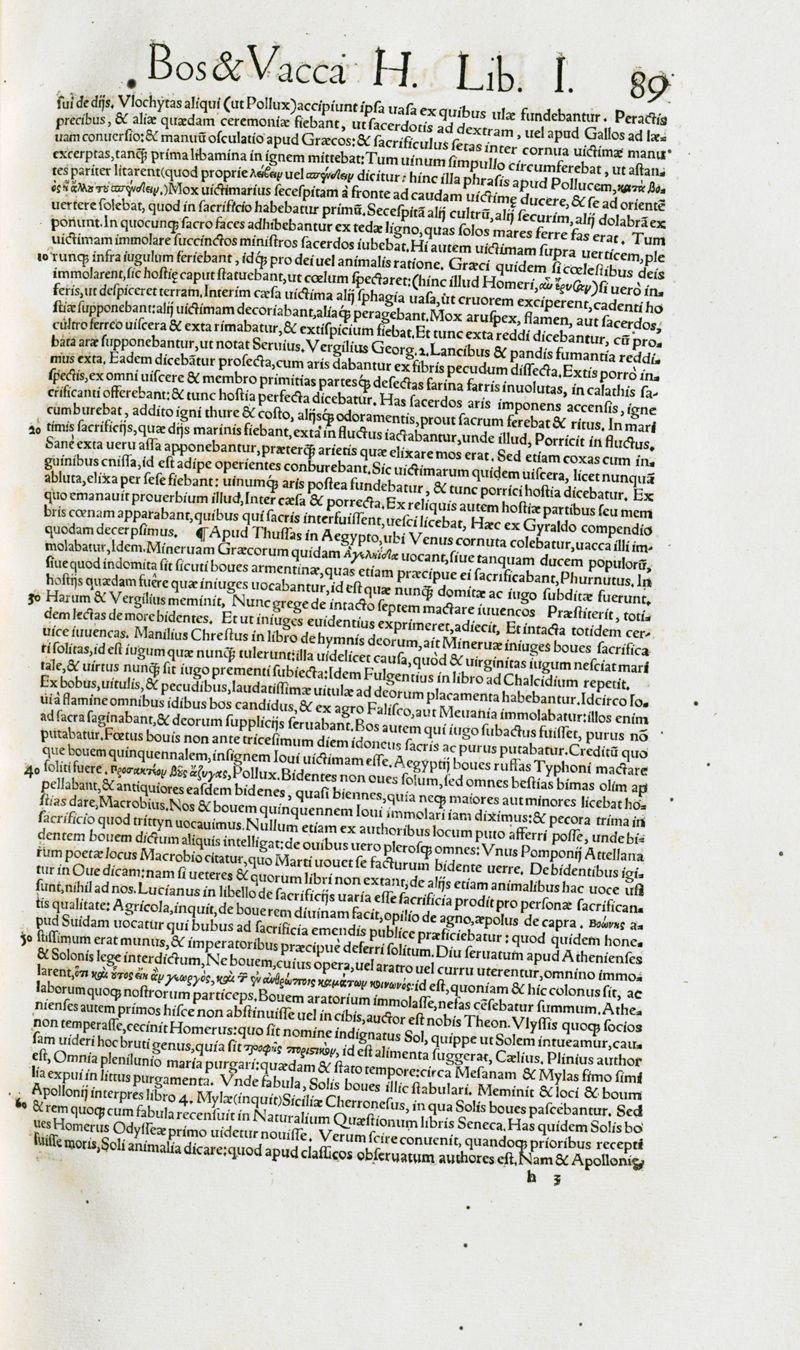 Bos & Vacca H. Lib. I. 89
sui de dijs. Vlochytas aliqui (ut Pollux) accipiunt ipsa uasa ex quibus ulæ fundebantur. Peractis
precibus, & aliæ quædam ceremoniæ fiebant, ut sacerdotis ad dextram, uel apud Gallos ad læ-
uam conuersio: & manuū osculatio apud Græcos: & sacrificulus setas inter cornua uictimæ manu
excerptas, tanq́ prima libamina in ignem mittebat: Tum uinum simpullo circumferebat, ut astan-
tes pariter litarent (quod proprie λείβειν uel dicitur: hinc illa phrasis apud Pollucem, κατὰ βο
Mox uictimarius secespitam à fronte ad caudam uictimę ducere, & se ad orientē
uertere solebat, quod in sacrificio habebatur primū. Secespitā alij cultrū, alij securim, alij dolabrā ex
ponunt. In quocunq; sacro faces adhibebantur ex tedæ ligno, quas solos mares ferre fas erat. Tum
uictimam immolare succinctos ministros sacerdos iubebat. Hi autem uictimam supra uerticem, ple
10 runq; infra iugulum feriebant, idq; pro dei uel animalis ratione. Græci quidem si cœlestibus deis
immolarent, sic hostię caput statuebant, ut cœlum spectaret: (hinc illud Homeri, αὖ ἐρυσαν) si uero in-
feris, ut despiceret terram. Interim cæsa uictima alij sphagia uasa, ut cruorem exciperent, cadenti ho
stiæ supponebant: alij uictimam decoriabant, aliaq; peragebant. Mox aruspex, flamen, aut sacerdos,
cultro ferreo uiscera & exta rimabatur, & extispicium fiebat. Et tunc exta reddi dicebantur, cū pro-
bata aræ supponebantur, ut notat Seruius. Vergilius Georg. 2. Lancibus & pandis fumantia reddi-
mus exta. Eadem dicebātur prosecta, cum aris dabantur ex fibris pecudum dissecta. Extis porrò in-
spectis, ex omni uiscere & membro primitias partesq; desectas farina farris inuolutas, in calathis sa-
crificanti offerebant: & tunc hostia perfecta dicebatur. Has sacerdos aris imponens accensis, igne
cumburebat, addito igni thure & costo, alijsq; odoramentis, prout sacrum ferebat & ritus. In mari
20 timis sacrificijs, quæ dijs marinis fiebant, exta in fluctus iactabantur, unde illud, Porricit in fluctus.
Sanè exta ueru assa apponebantur, præterq́ arietis quæ elixare mos erat. Sed etiam coxas cum in-
guinibus cnissa, id est adipe operientes conburebant. Sic uictimarum quidem uiscera, licet nunquā
abluta, elixa per sese fiebant: uinumq; aris postea fundebatur, & tunc porrici hostia dicebatur. Ex
quo emanauit prouerbium illud, Inter cæsa & porrecta. Ex reliquis autem hostiæ partibus seu mem
bris cœnam apparabant, quibus qui sacris interfuissent, uesci licebat, Hæc ex Gyraldo compendio
quodam decerpsimus. ¶ Apud Thussas in Aegypto, ubi Venus cornuta colebatur, uacca illi im-
molabatur, Idem. Mineruam Græcorum quidam uocant, siue tanquam ducem populorū,
siue quod indomita sit sicuti boues armentinæ, quas etiam præcipue ei sacrificabant, Phurnutus. In
hostijs quædam fuere quæ iniuges uocabantur, id est quæ nunq́ domitæ ac iugo subditæ fuerunt.
30 Harum & Vergilius meminit, Nunc grege de intacto septem mactare iuuencos Præstiterit, toti-
dem lectas de more bidentes. Et ut iniuges euidentius exprimeret, adiecit, Et intacta totidem cer-
uice iuuencas. Manilius Chrestus in libro de hymnis deorum, ait Mineruæ iniuges boues sacrifica
ri solitas, id est iugum quæ nunq́ tulerunt: illa uidelicet causa, quòd & uirginitas iugum nesciat mari
tale, & uirtus nunq́ sit iugo prementi subiecta: Idem Fulgentius in libro ad Chalcidium repetit.
Ex bobus, uitulis, & pecudibus, laudatissimæ uitulæ ad deorum placamenta habebantur. Idcirco Io-
ui à flamine omnibus idibus bos candidus, & ex agro Falisco, aut Meuania immolabatur: illos enim
ad sacra saginabant, & deorum supplicijs seruabant. Bos autem qui iugo subactus fuisset, purus nō
putabatur. Fœtus bouis non ante tricesimum diem idoneus sacris ac purus putabatur. Creditū quo
que bouem quinquennalem, insignem Ioui uictimam esse. Aegyptij boues ruffas Typhoni mactare
40 soliti fuere. βοῦς ἄζυγας, Pollux. Bidentes non oues solum, sed omnes bestias bimas olim ap
pellabant, & antiquiores easdem bidenes, quasi biennes, quia neq; maiores aut minores licebat ho-
stias dare, Macrobius. Nos & bouem quinquennem Ioui immolari iam diximus: & pecora trima in
sacrificio quod trittyn uocauimus. Nullum etiam ex authoribus locum puto afferri posse, unde bi-
dentem bouem dictum aliquis intelligat: de ouibus uero pleriq; omnes: Vnus Pomponij Attellana
rum poetæ locus Macrobio citatur, quo Marti uouet se facturum bidente uerre. De bidentibus igi-
tur in Oue dicam: nam si ueteres & quorum libri non extant, de alijs etiam animalibus hac uoce usi
sunt, nihil ad nos. Lucianus in libello de sacrificijs uaria esse sacrificia prodit pro personæ sacrifican-
tis qualitate: Agricola, inquit, de bouerem diuinam facit, opilio de agno, æpolus de capra. Βοώνης a-
pud Suidam uocatur qui bubus ad sacrificia emendis publice præficiebatur: quod quidem hone-
50 stissimum erat munus, & imperatoribus præcipuè deferri solitum. Diu seruatum apud Athenienses
& Solonis lege interdictum, Ne bouem, cuius opera, uel aratro uel curru uterentur, omnino immo-
larent, ὅτι καὶ γεωργὸς, καὶ ἀνθρώποις καμάτων κοινωνός: id est, quoniam & hic colonus sit, ac
laborum quoq; nostrorum particeps. Bouem aratorium immolasse, nefas cēsebatur summum. Athe-
nienses autem primos hisce non abstinuisse uel in cibis, auctor est nobis Theon. Vlyssis quoq; socios
non temperasse, cecinit Homerus: quo sit nomine indignatus Sol, quippe ut Solem intueamur, cau-
sam uideri hoc bruti genus, quia sit τροφῆς ποριστικὸν, id est alimenta suggerat, Cælius. Plinius author
est, Omnia plenilunio maria purgari: quædam & stato tempore: circa Mesanam & Mylas fimo simi
lia expui in littus purgamenta. Vnde fabula, Solis boues illic stabulari. Meminit & loci & boum
Apollonij interpres libro 4. Mylæ (inquit) Siciliæ Cherronesus, in qua Solis boues pascebantur. Sed
60 & rem quoq; cum fabula recensuit in Naturalium Quæstionum libris Seneca. Has quidem Solis bo
ues Homerus Odysseæ primo uidetur nouisse. Verum scire conuenit, quandoq; prioribus recepti
fuisse moris, Soli animalia dicare: quod apud classicos obseruatum authores est. Nam & Apollonię
h 3